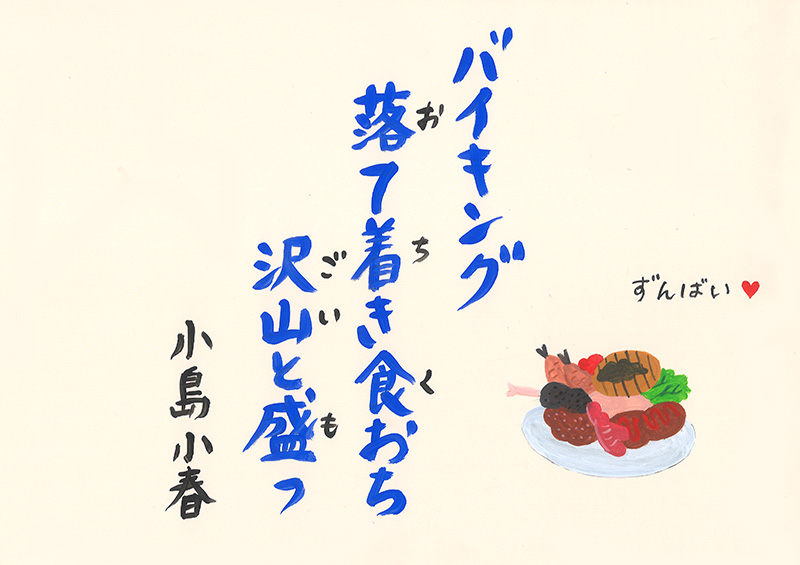 ずんばい♥
バイキング
落て着き食おち
お ち く
沢山と盛っ
ごい も
小島小春